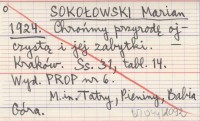 SOKOŁOWSKI Marian
1924. Chrońmy przyrodę oj-
czystą i jej zabytki.
Kraków. Ss. 31, tabl. 14.
Wyd. PROP nr 6.
M.in. Tatry, Pieniny, Babia
Góra.